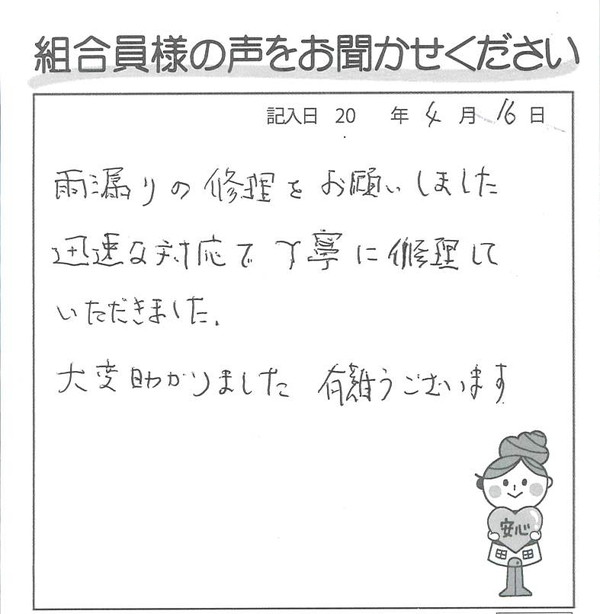 組合員様の声をお聞かせください
記入日 20 年 4 月 16 日
雨漏りの修理をお願いしました
迅速な対応で丁寧に修理して
いただきました.
大変助かりました 有難うございます
安心